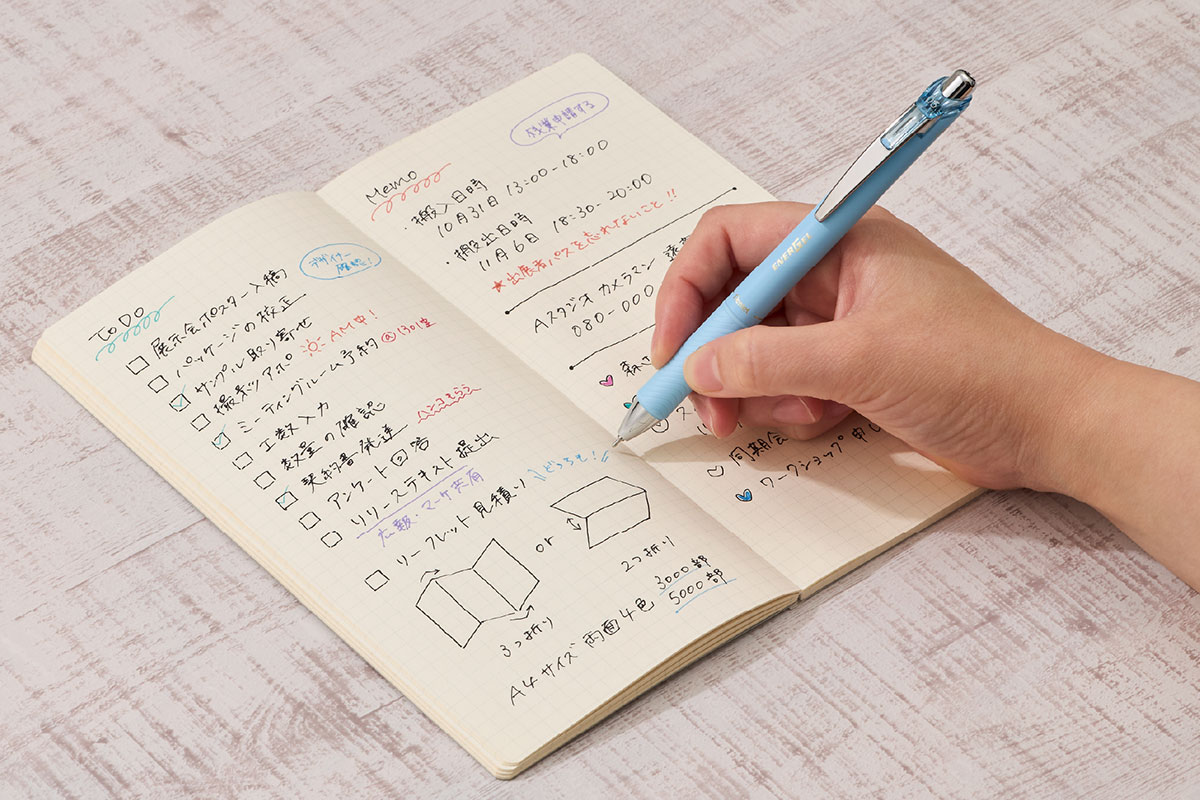 TODO
デザイナー
確認!
展示会ポスター入稿
パッケージの校正
サンプル取り寄せ
撮影アポ AM中!
ミーティングルーム予約 @1301室
工数入力
数量の確認
契約書発送 ハンコもらう
アンケート回答
リリーステキスト提出
広報・マーケ共有
リーフレット見積り どっちも!
or
3つ折り
2つ折り
A4サイズ 両面4色 3000部
5000部
Memo
残業申請する
・搬入日時
10月31日 13:00-18:00
・搬出日時
11月6日 18:30-20:00
★出展者パスを忘れないこと!!
Aスタジオ カメラマン
080-000
同期会
ワークショップ 申
ENERGEL